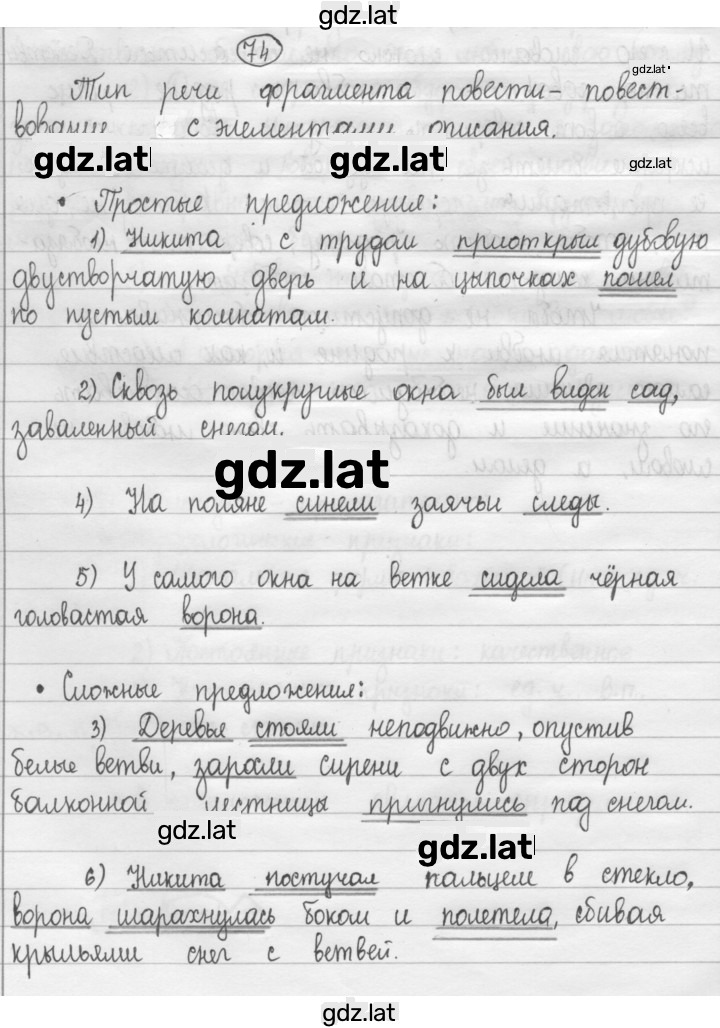 gdz.lat
74
gdz.lat
Тип речи фрагмента повести – повест-
с элементами описания.
gdz.lat gdz.lat gdz.lat
• Простые предложения:
1) Никита с трудом приоткрыл дубовую
двустворчатую дверь и на цыпочках пошел
по пустым комнатам.
2) Сквозь полукруглые окна был виден сад,
заваленный снегом.
gdz.lat
4) На поляне синели заячьи следы.
5) У самого окна на ветке сидела чёрная
головастая ворона.
• Сложные предложения:
3) Деревья стояли неподвижно, опустив
белые ветви, заросли сирени с двух сторон
балконной лестницы пригнулись под снегом.
gdz.lat
gdz.lat
6) Никита постучал пальцем в стекло,
ворона шарахнулась боком и полетела, сбивая
крыльями снег с ветвей.
gdz.lat